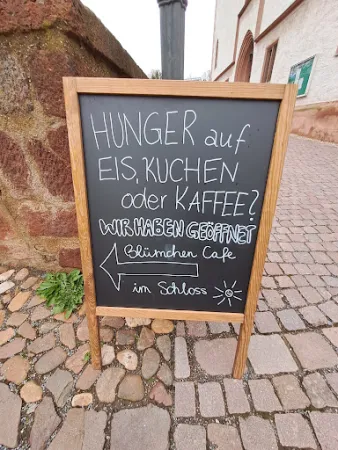 HUNGER auf
EIS, KUCHEN
oder KAFFEE?
WIR HABEN GEÖFFNET
Blümchen Cafe
im Schloss